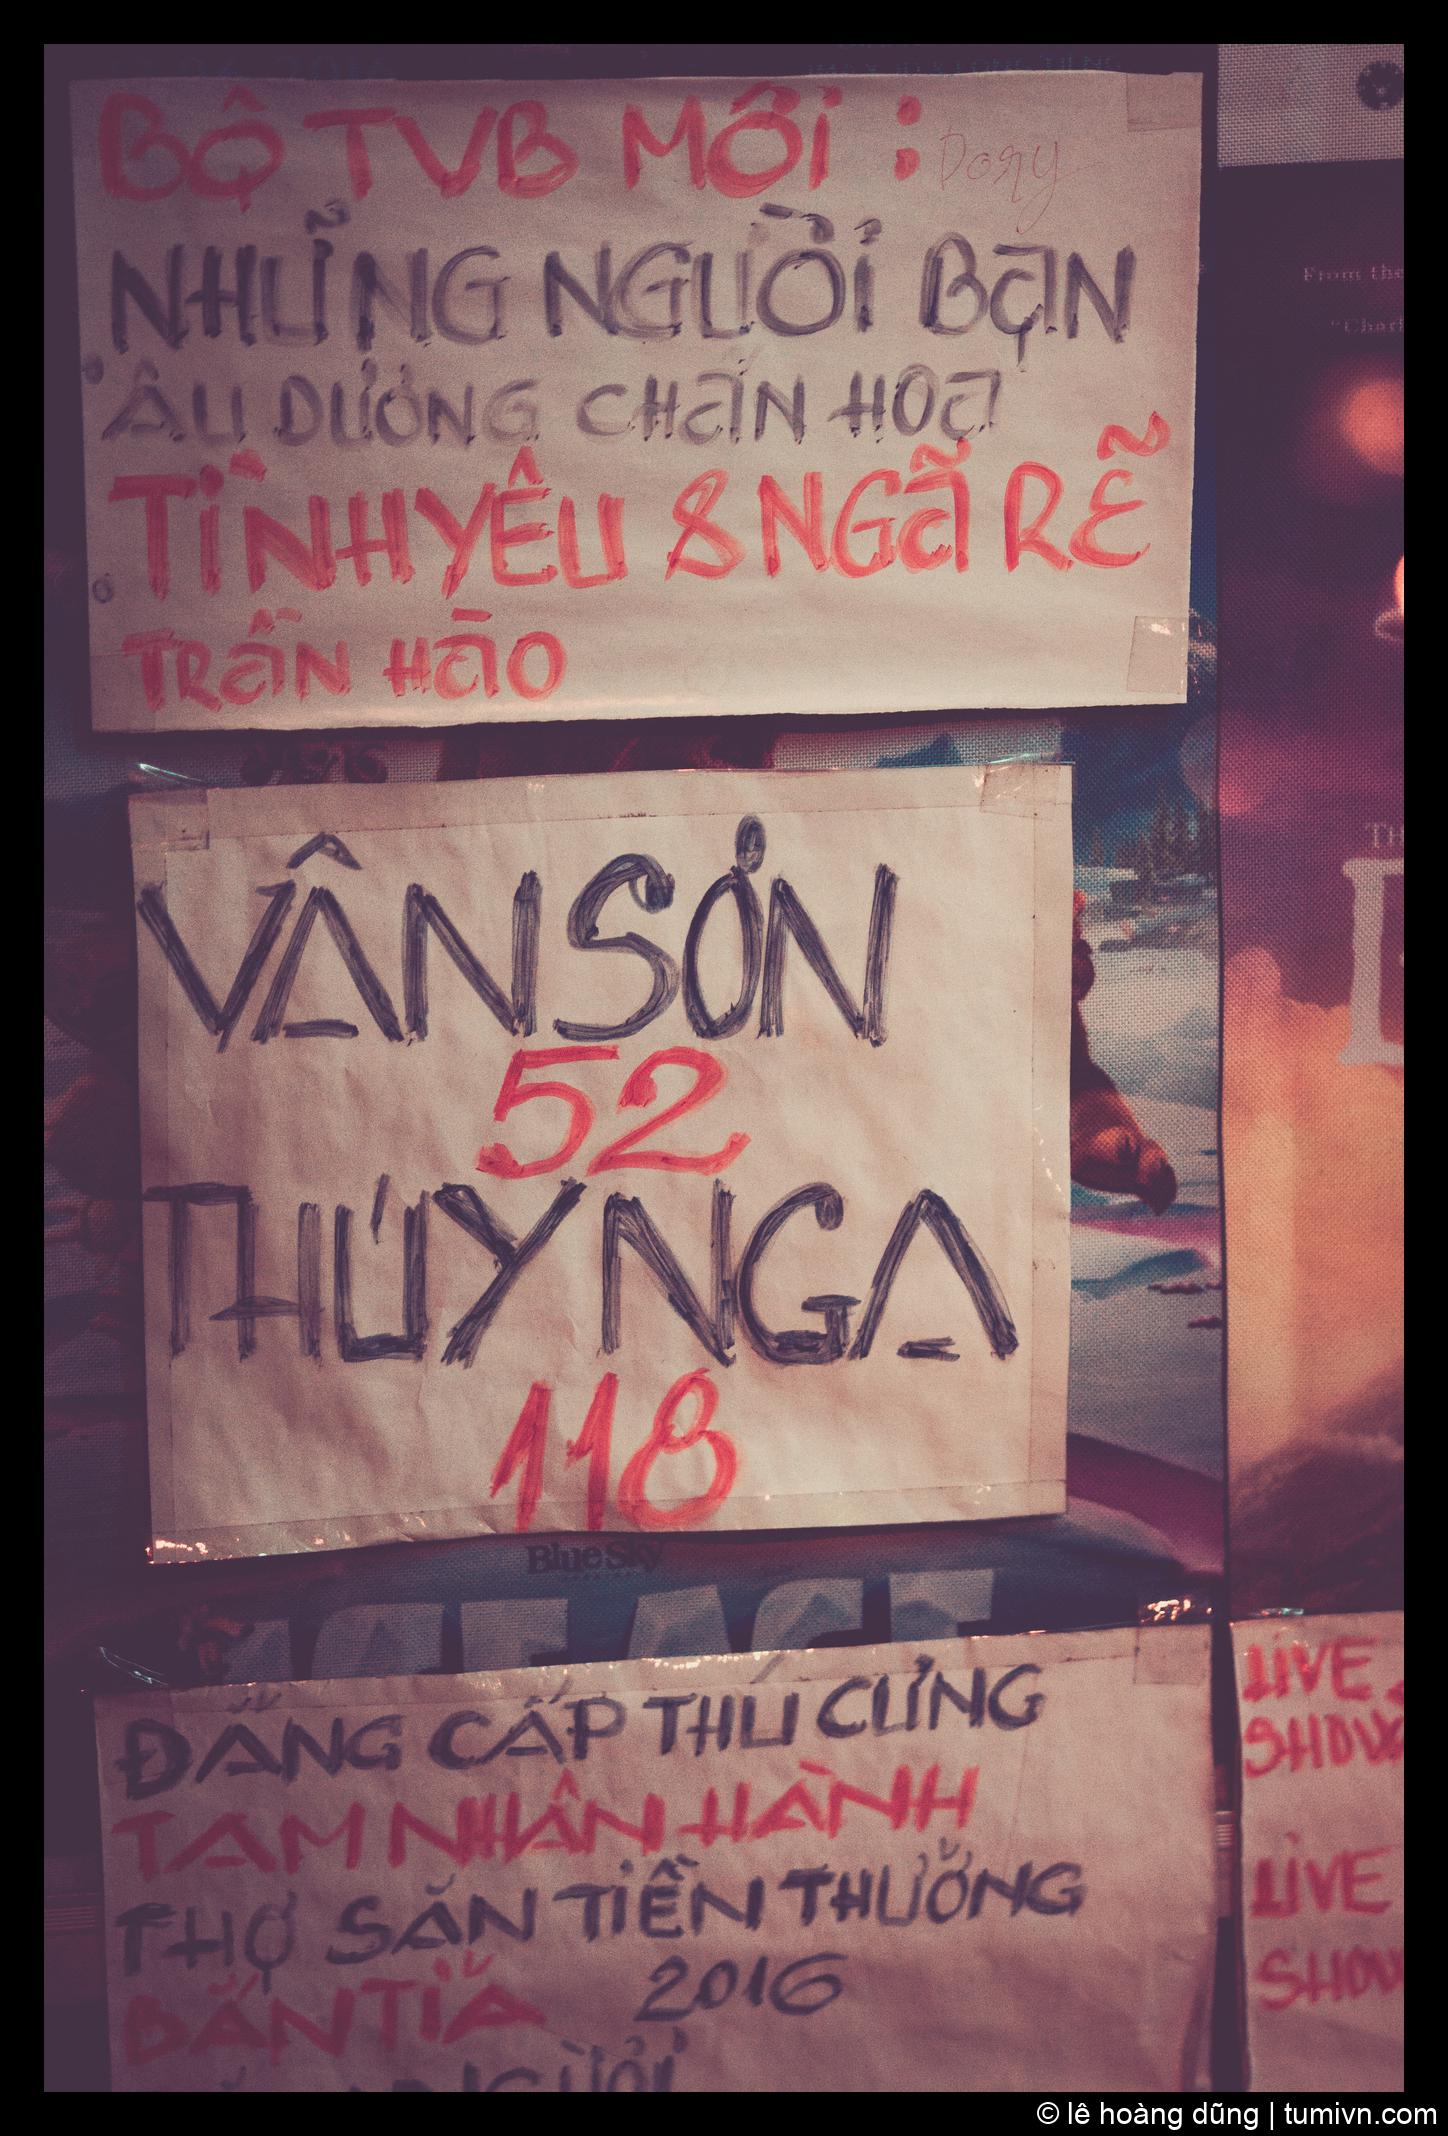 BỘ TVB MỚI : Dory
NHỮNG NGƯỜI BẠN
ÂU DƯƠNG CHẤN HOA
TÌNH YÊU & NGÃ RẼ
TRẦN HÀO
VÂN SƠN
52
THÚY NGA
118
BlueSky
ICE AGE
ĐẲNG CẤP THÚ CƯNG
TAM NHÂN HÀNH
THỢ SĂN TIỀN THƯỞNG
BẮN TỈA 2016
From the
"Charl
LIVE
SHOW
LIVE
SHOW
© lê hoàng dũng | tumivn.com